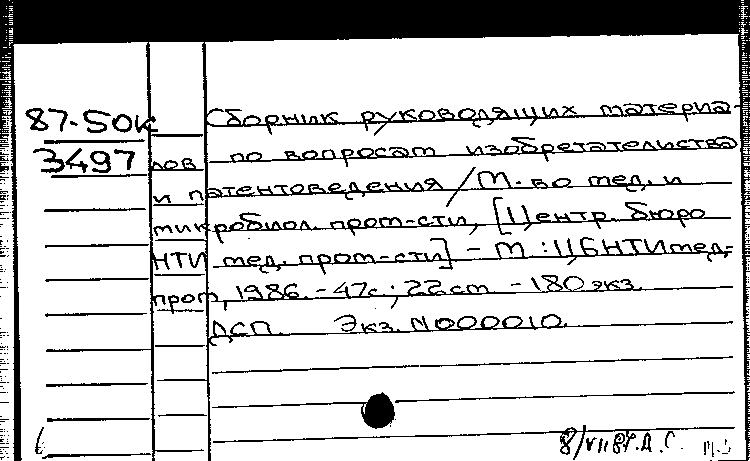 87-50к Сборник руководящих материа-
3497 лов по вопросам изобретательства
и патентоведения / М-во мед. и
микробиол. пром-сти, [Центр. бюро
НТИ мед. пром-сти] - М : ЦБНТИмед-
пром, 1986. - 47с.; 22.см - 180 экз.
ДСП. Экз. N000010.
8/VII87. А.С.